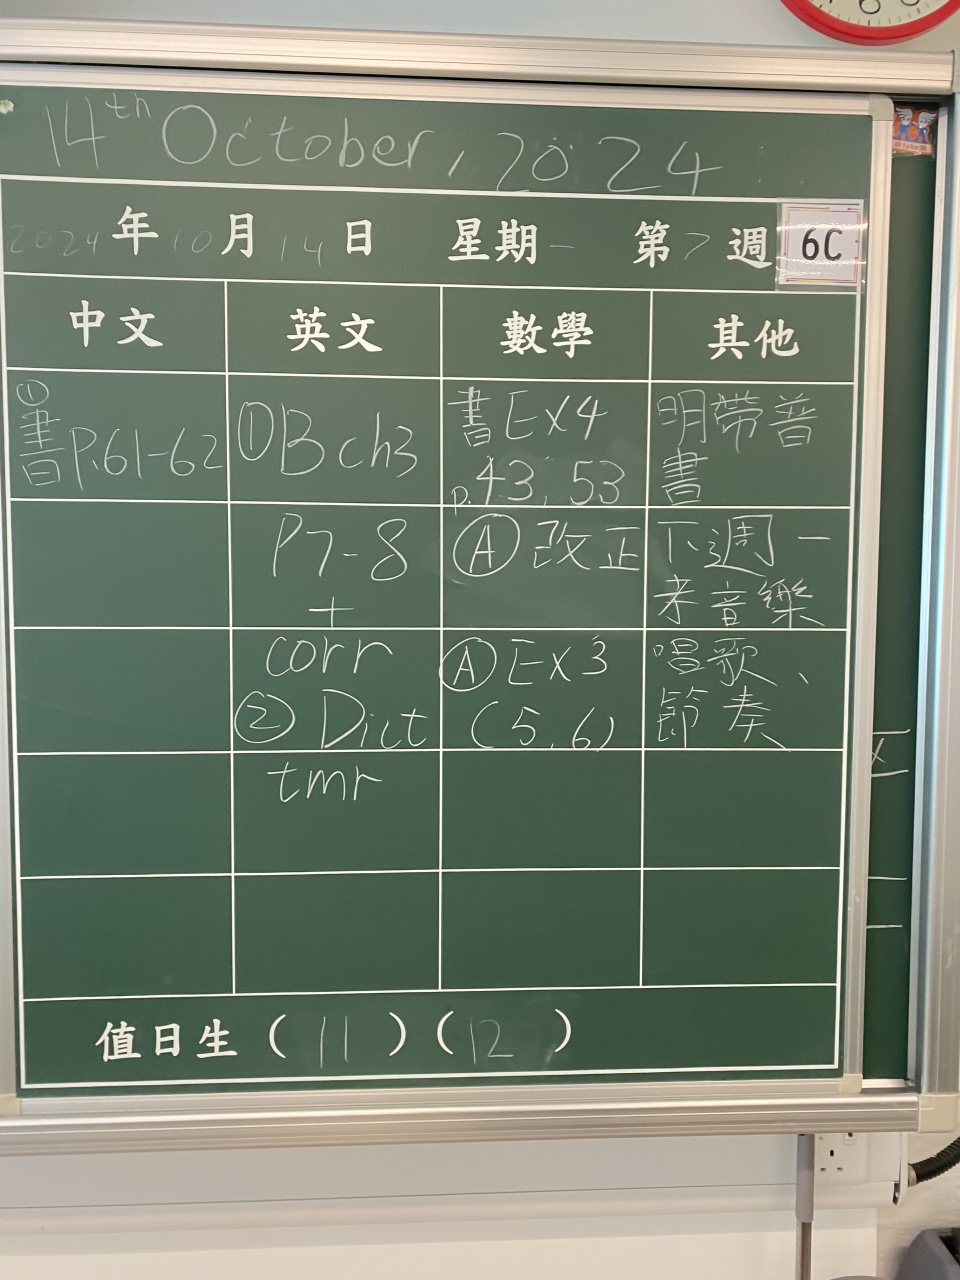 14th October, 2024
2024 年 10 月 14 日 星期一 第 7 週 6C
中文 英文 數學 其他
①
書 P.61-62
① B ch3
P7-8
+
corr
② Dict
tmr
書 Ex4
p.43, 53
Ⓐ 改正
Ⓐ Ex3
(5, 6)
明帶普
書
下週一
考音樂
唱歌、
節奏
值日生 ( 11 ) ( 12 )